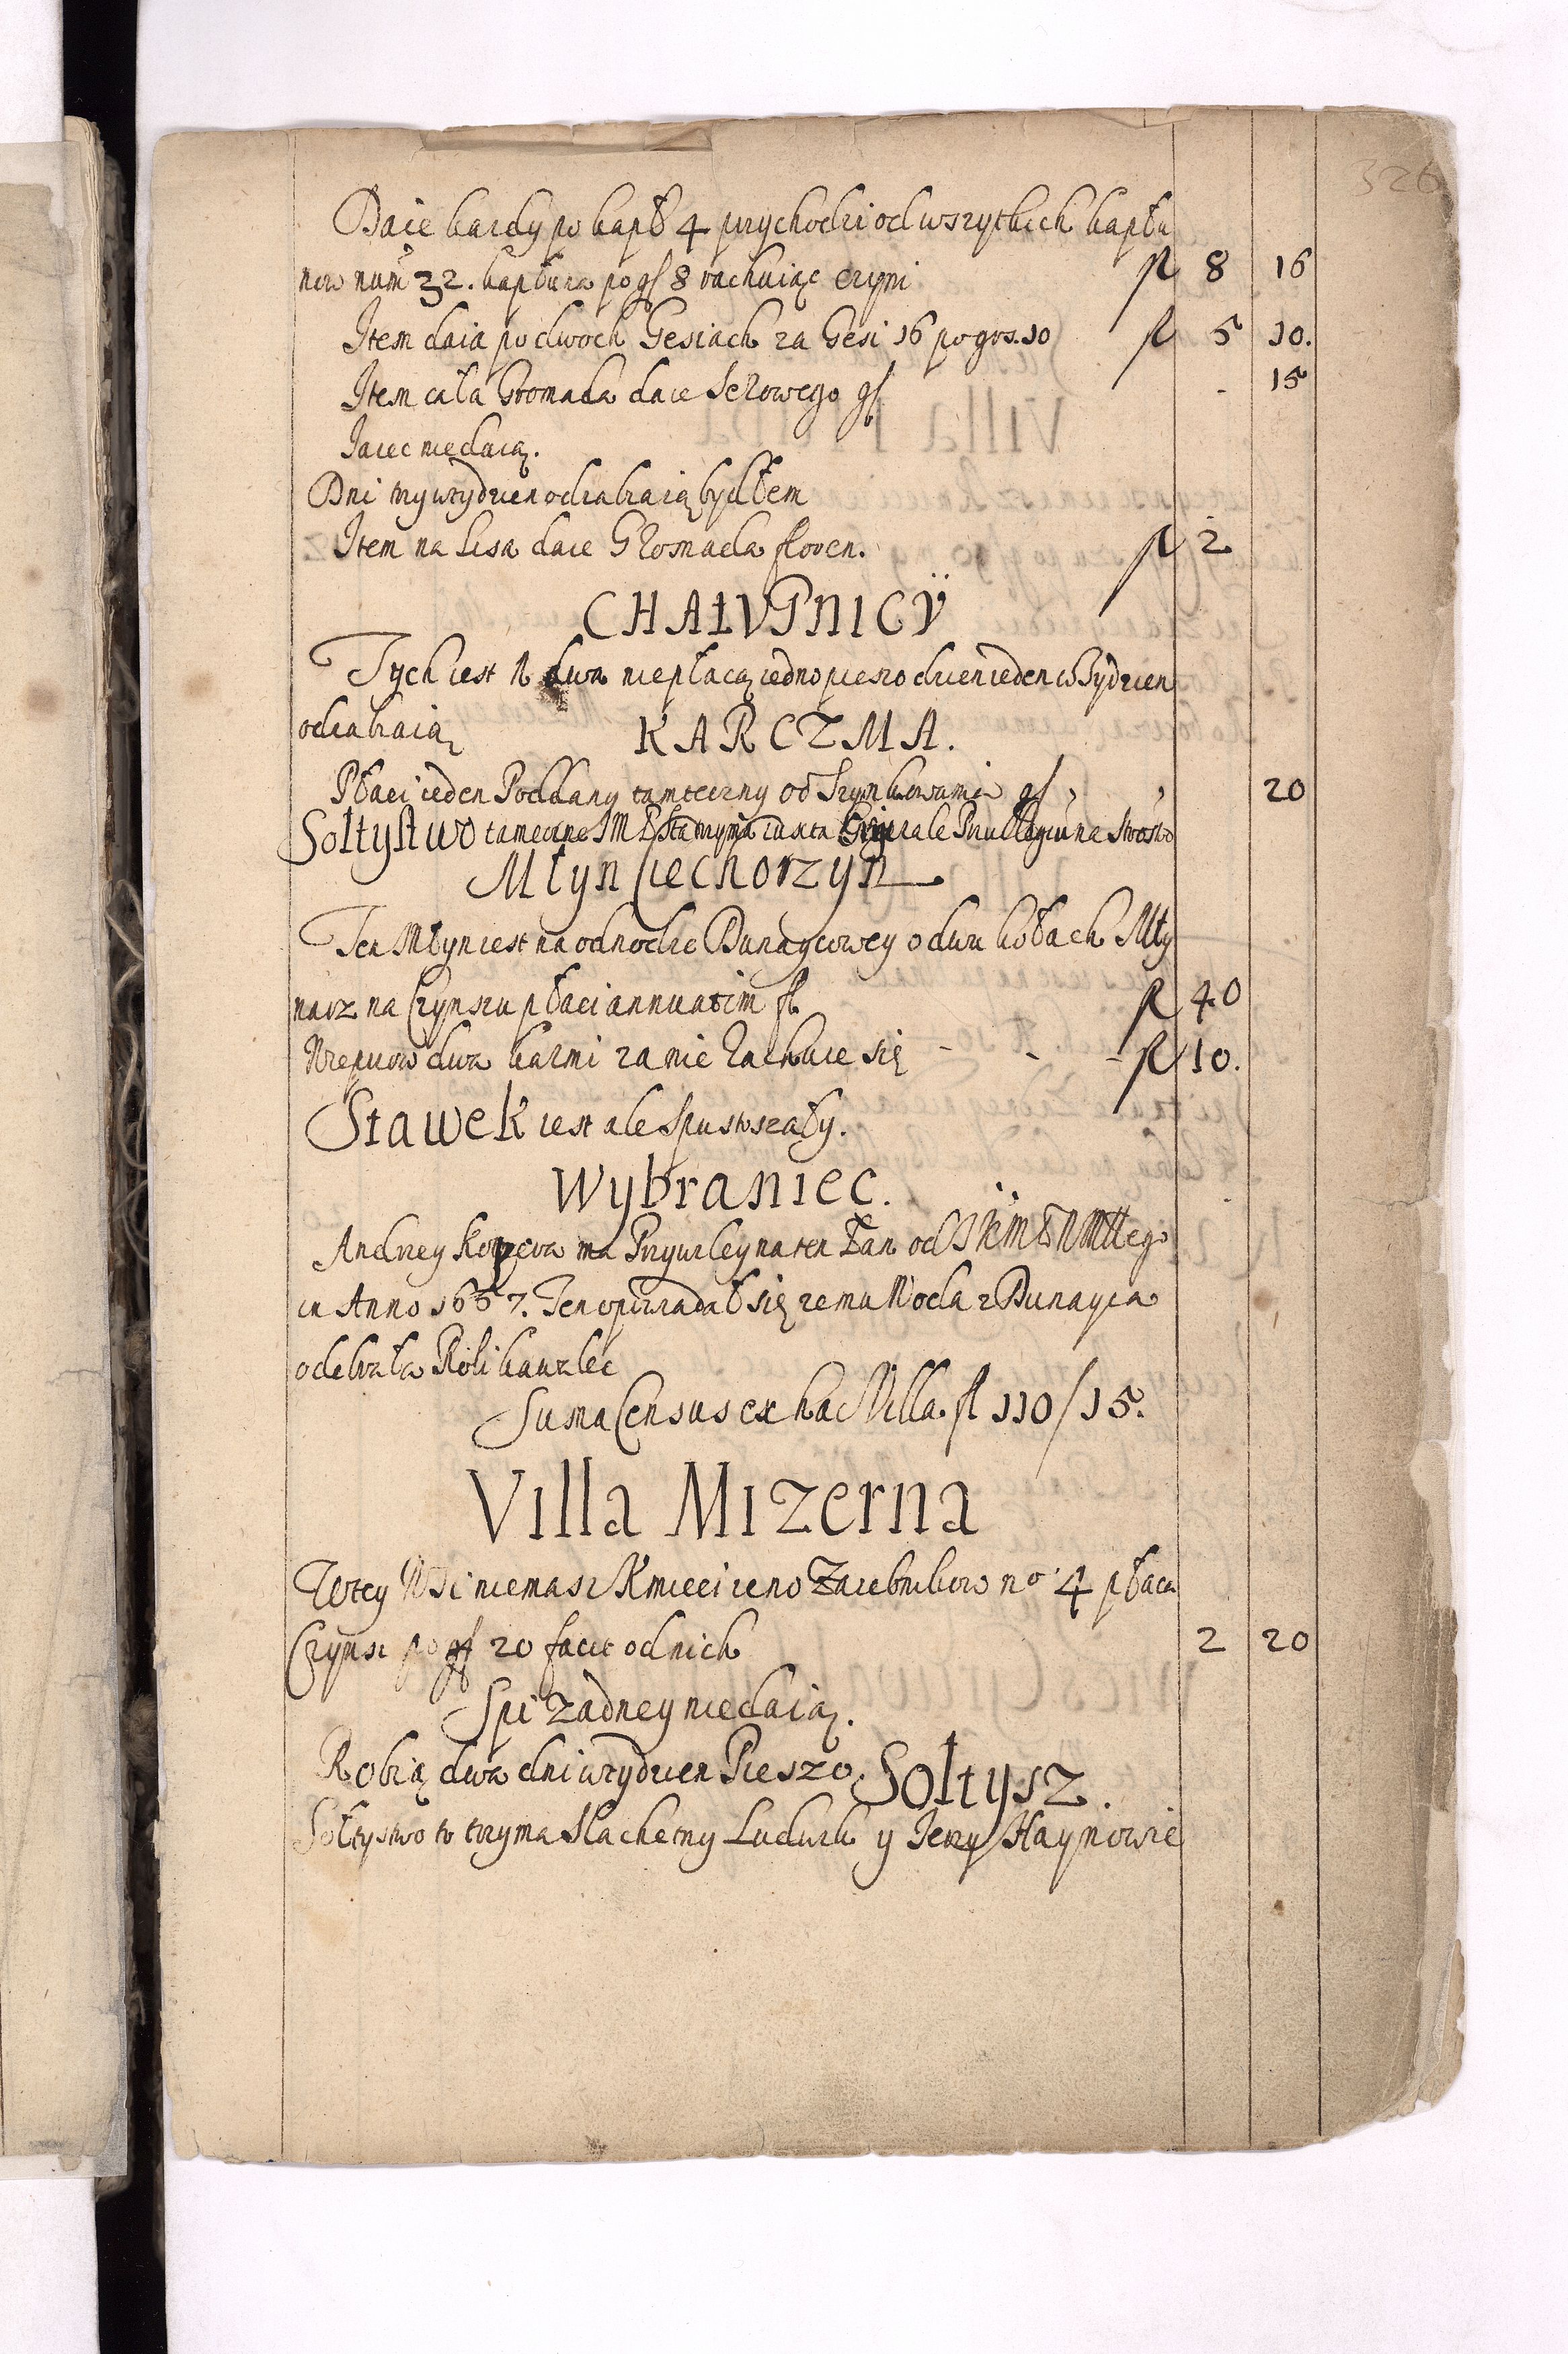 326
Daie kazdy po kapł 4 przychodzi od wszytkich kapłu
now num 32. kapłuna po gſ 8 rachuiąc czyni fl 8 16
Item daia po dwoch Gesiach za Gesi 16 po gros. 10 fl 5 10.
Item cała Gromada daie Serowego gſ - 15
Jaiec niedaią.
Dni trzy wtydzien odrabiaią bydłem
Item na Lisa daie Gromada floren. fl 2
CHAŁVPNICŸ
Tych iest N dwa niepłacą iedno pieszo dzien ieden w Tydzien
odrabiaią KARCZMA.
Płaci ieden Poddany tameczny od Szynkowania gſ 20
Sołtystwo tameczne IM P Sta trzyma iuxta
Młyn Ciechorzyn
Ten Młyn iest na odnodze Dunaycowey o dwu kołach Mły
narz na Czynszu płaci annuatim fl fl 40
Wieprzow dwa karmi za nie Rachuie się - - - fl 10.
Stawek iest ale Spustoszały.
Wybraniec.
Andrzey ma Przywiley na ten Łan od
in Anno 1657. Ten opowiadał się ze mu Woda z Dunayca
odebrała Roli kawalec
Suma Census ex hac Villa. fl 110/15.
Villa Mizerna
Wtey Wsi niemasz Kmieci ieno Zarebnikow no. 4 płacą
Czynsz po gſ 20 facit od nich 2 20
Spi Zadney niedaią.
Robią dwa dni wtydzien Pieszo. Sołtysz.
Sołtystwo to trzyma Slachetny Ludwik y Jerzy Haynowie